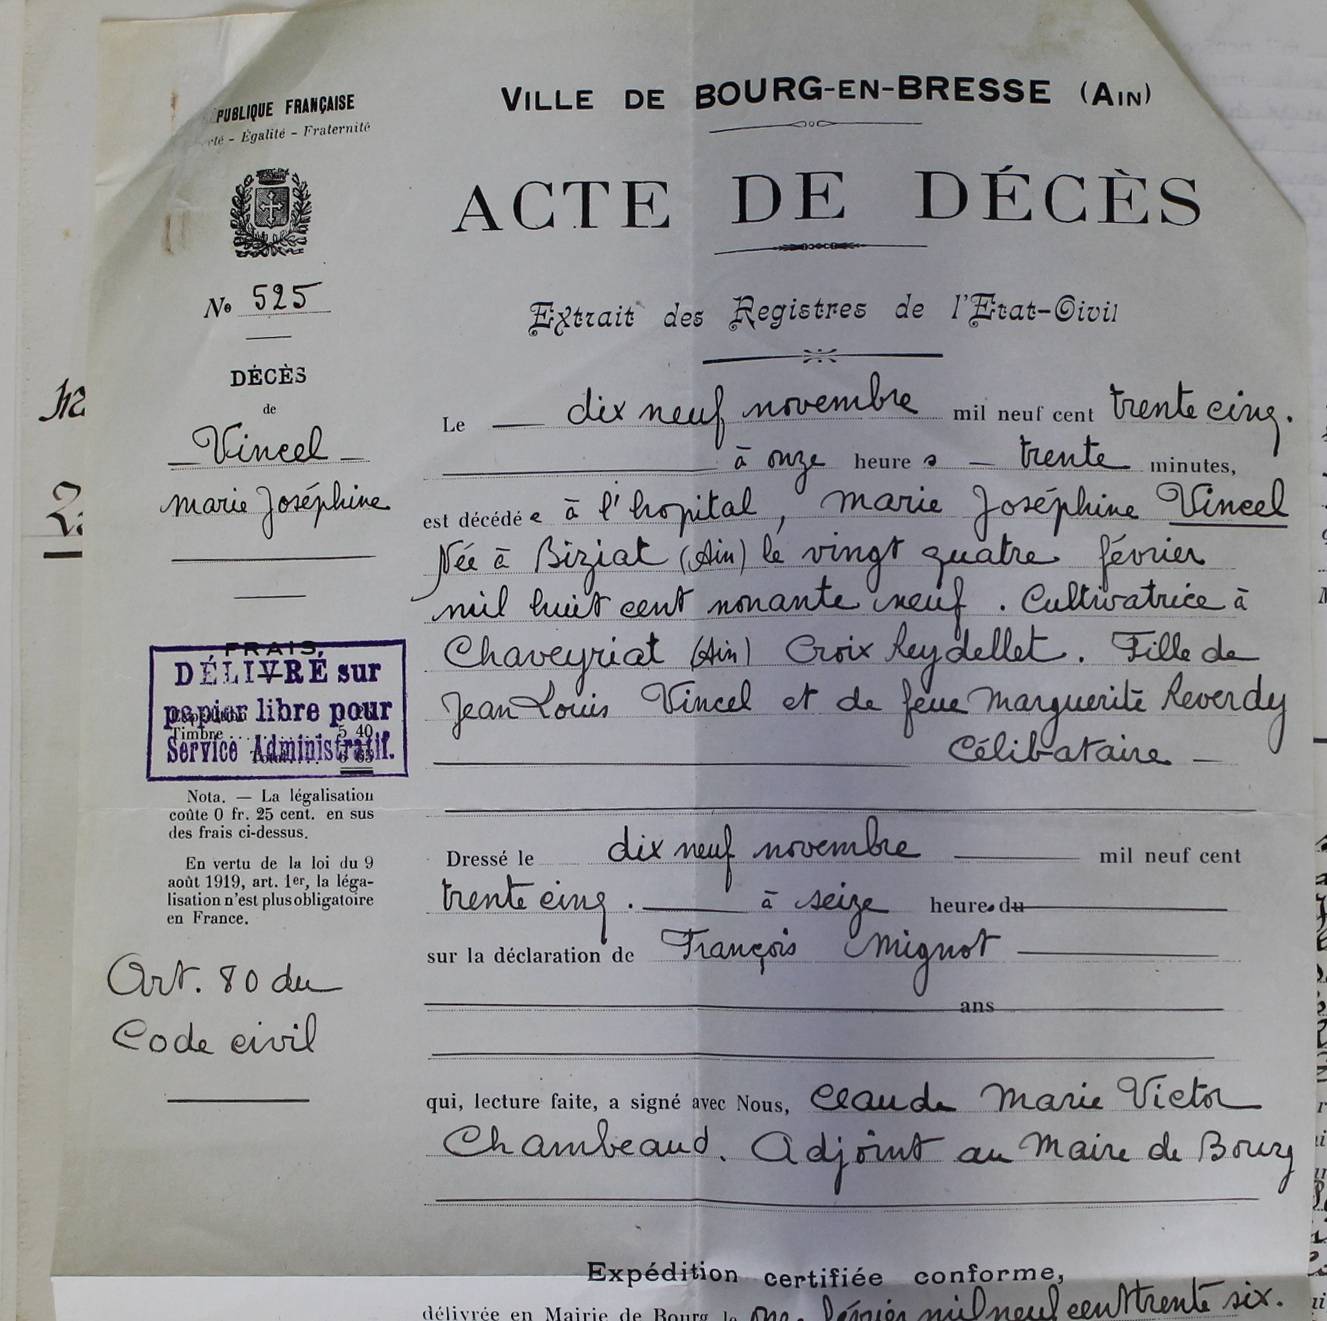 PUBLIQUE FRANÇAISE
rté - Égalité - Fraternité
No 525
DÉCÈS
de
Vincel
marie Joséphine
FRAIS,
DÉLIVRÉ sur
papier libre pour
Timbre ... 5 40
Service Administratif.
Nota. — La légalisation
coûte 0 fr. 25 cent. en sus
des frais ci-dessus.
En vertu de la loi du 9
août 1919, art. 1er, la léga-
lisation n'est plus obligatoire
en France.
Art. 80 du
Code civil
VILLE DE BOURG-EN-BRESSE (AIN)
ACTE DE DÉCÈS
Extrait des Registres de l'Etat-Civil
Le dix neuf novembre mil neuf cent trente cinq.
à onze heures trente minutes,
est décédée à l'hopital, Marie Joséphine Vincel
Née à Biziat (Ain) le vingt quatre février
mil huit cent nonante neuf. Cultivatrice à
Chaveyriat (Ain) Croix Reydellet. Fille de
Jean Louis Vincel et de feue Marguerite Reverdy
Célibataire
Dressé le dix neuf novembre mil neuf cent
trente cinq. à seize heure du
sur la déclaration de François Mignot
ans
qui, lecture faite, a signé avec Nous, Claude Marie Victor
Chambeaud. Adjoint au Maire de Bourg
Expédition certifiée conforme,
délivrée en Mairie de Bourg le février mil neuf cent trente six.